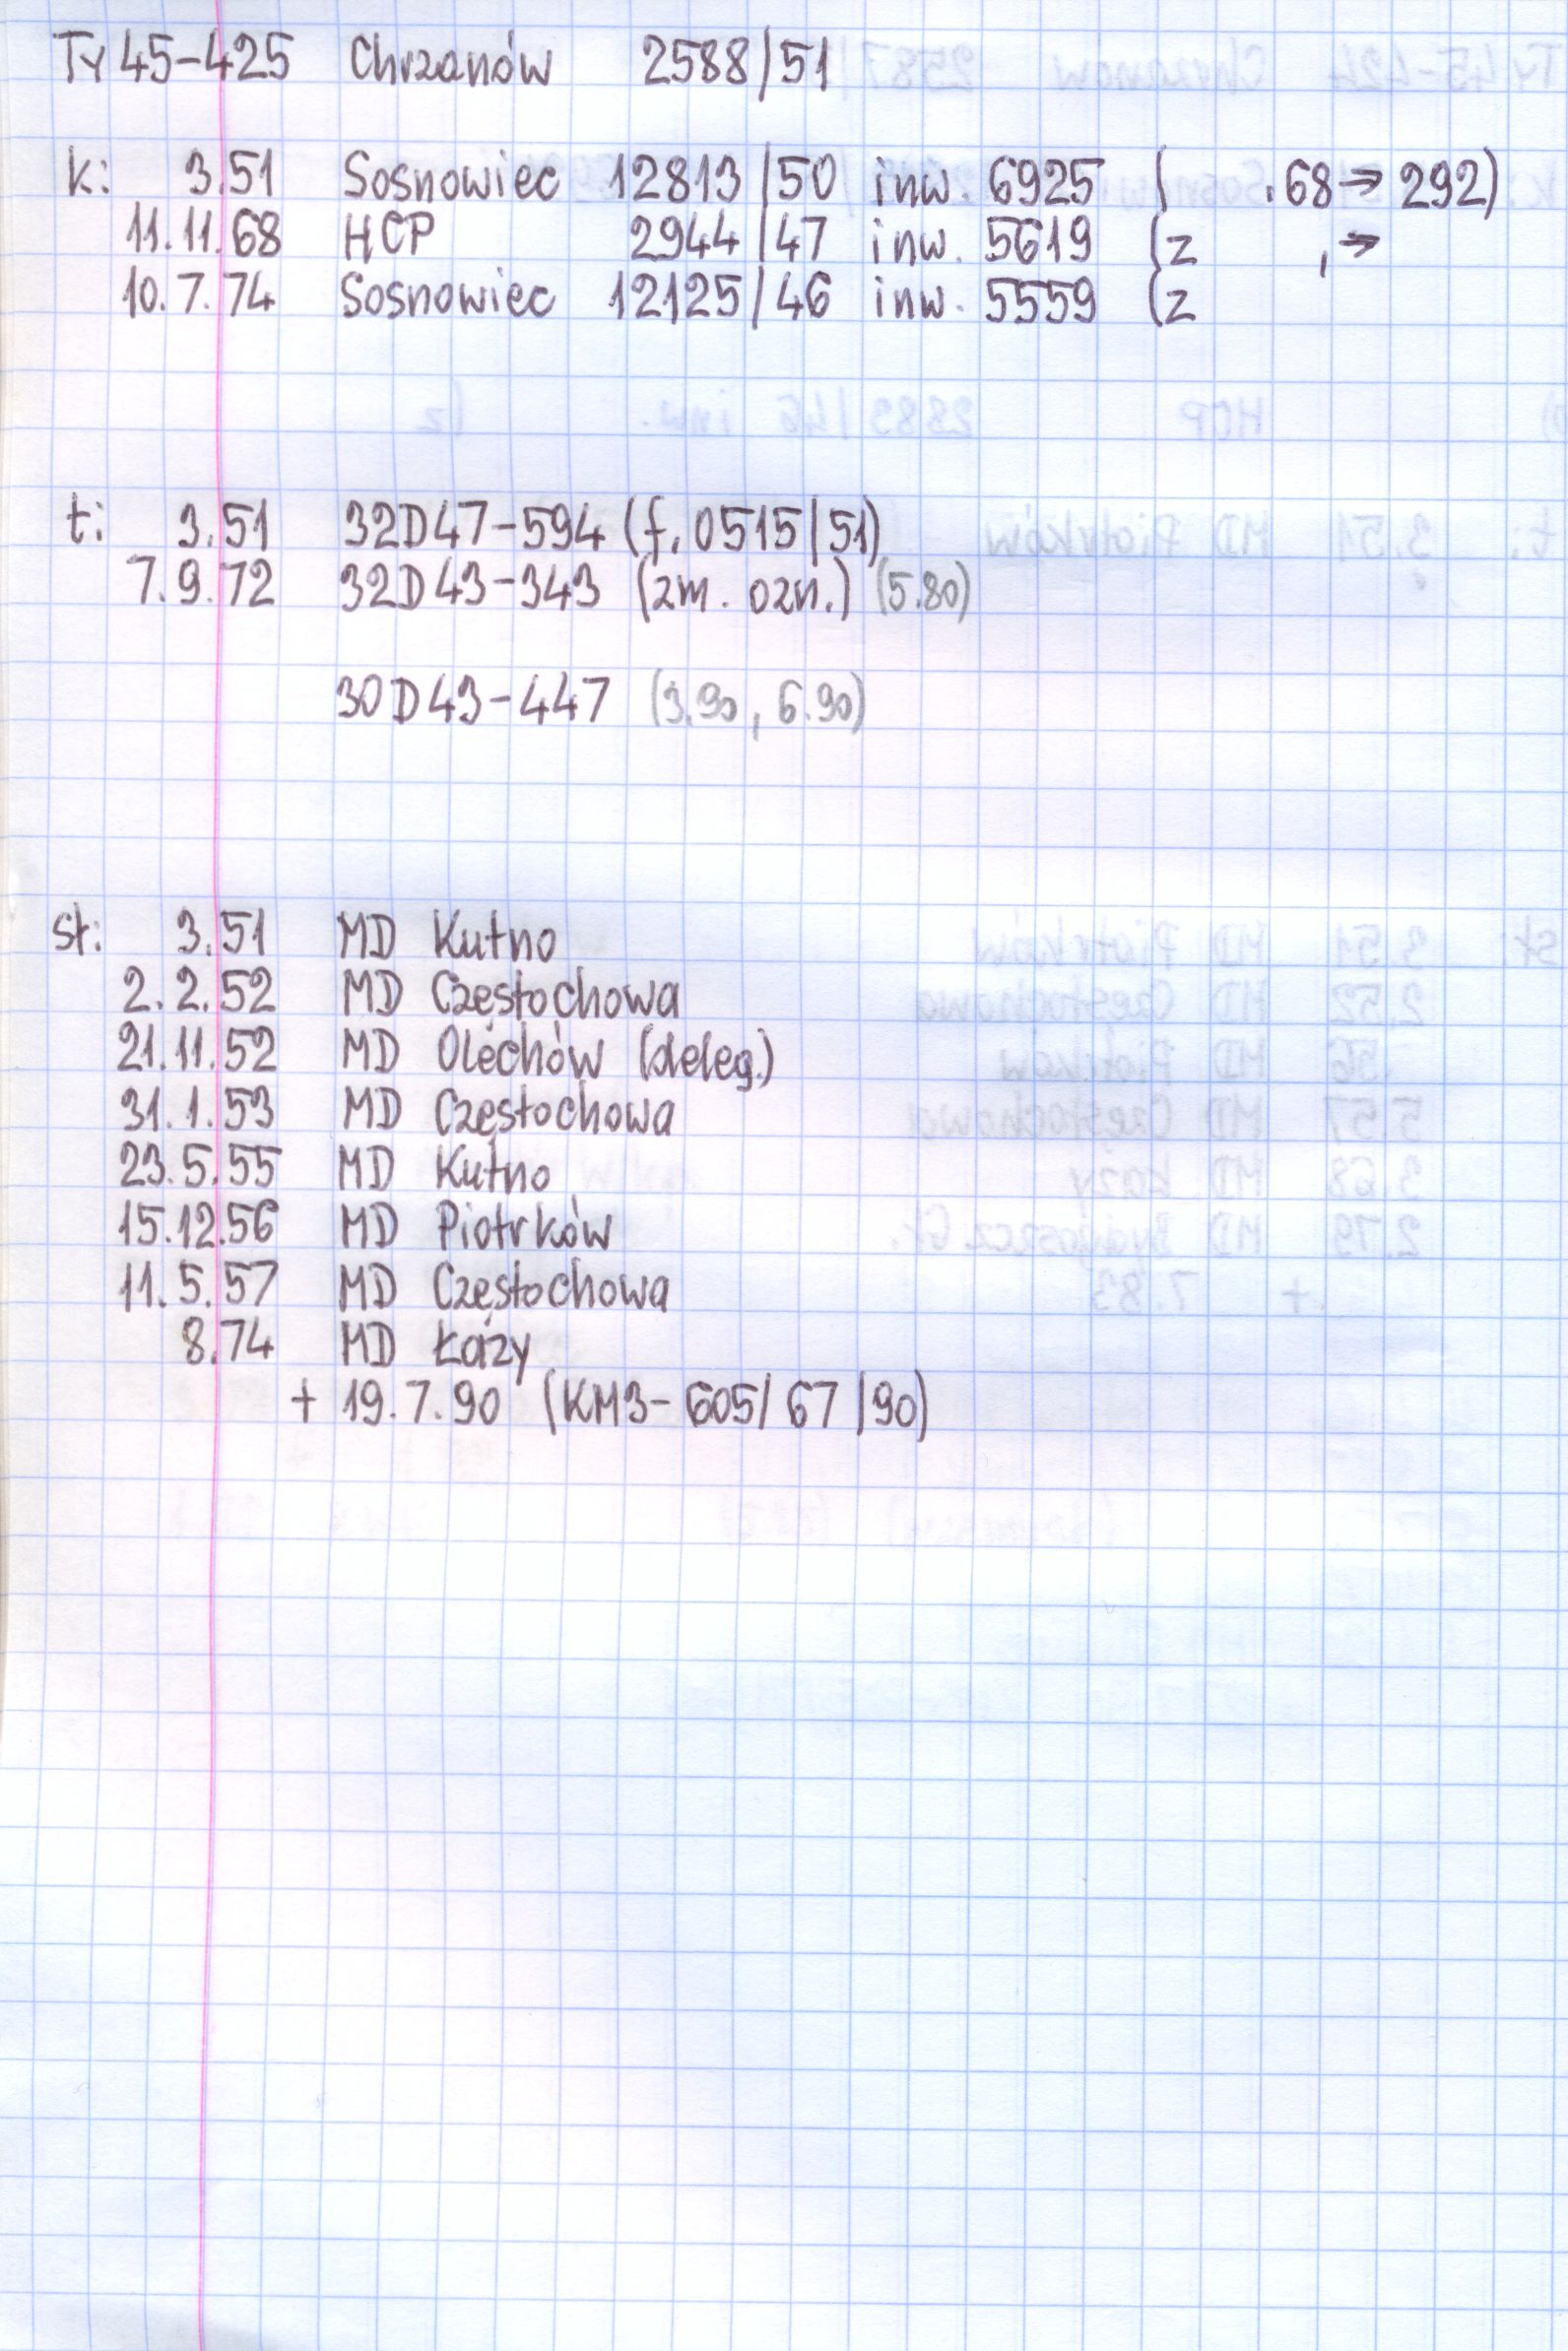 Ty45-425 Chrzanów 2588/51
k: 3.51 Sosnowiec 12813/50 inw. 6925 ( .68→292)
11.11.68 HCP 2944/47 inw. 5619 (z , →
10.7.74 Sosnowiec 12125/46 inw. 5559 (z
t: 3.51 32D47-594 (f. 0515/51)
7.9.72 32D43-343 (zm. ozn.) (5.80)
30D43-447 (3.90, 6.90)
st: 3.51 MD Kutno
2.2.52 MD Częstochowa
21.11.52 MD Olechów (deleg.)
31.1.53 MD Częstochowa
23.5.55 MD Kutno
15.12.56 MD Piotrków
11.5.57 MD Częstochowa
8.74 MD Łazy
+ 19.7.90 (KM3-605/67/90)